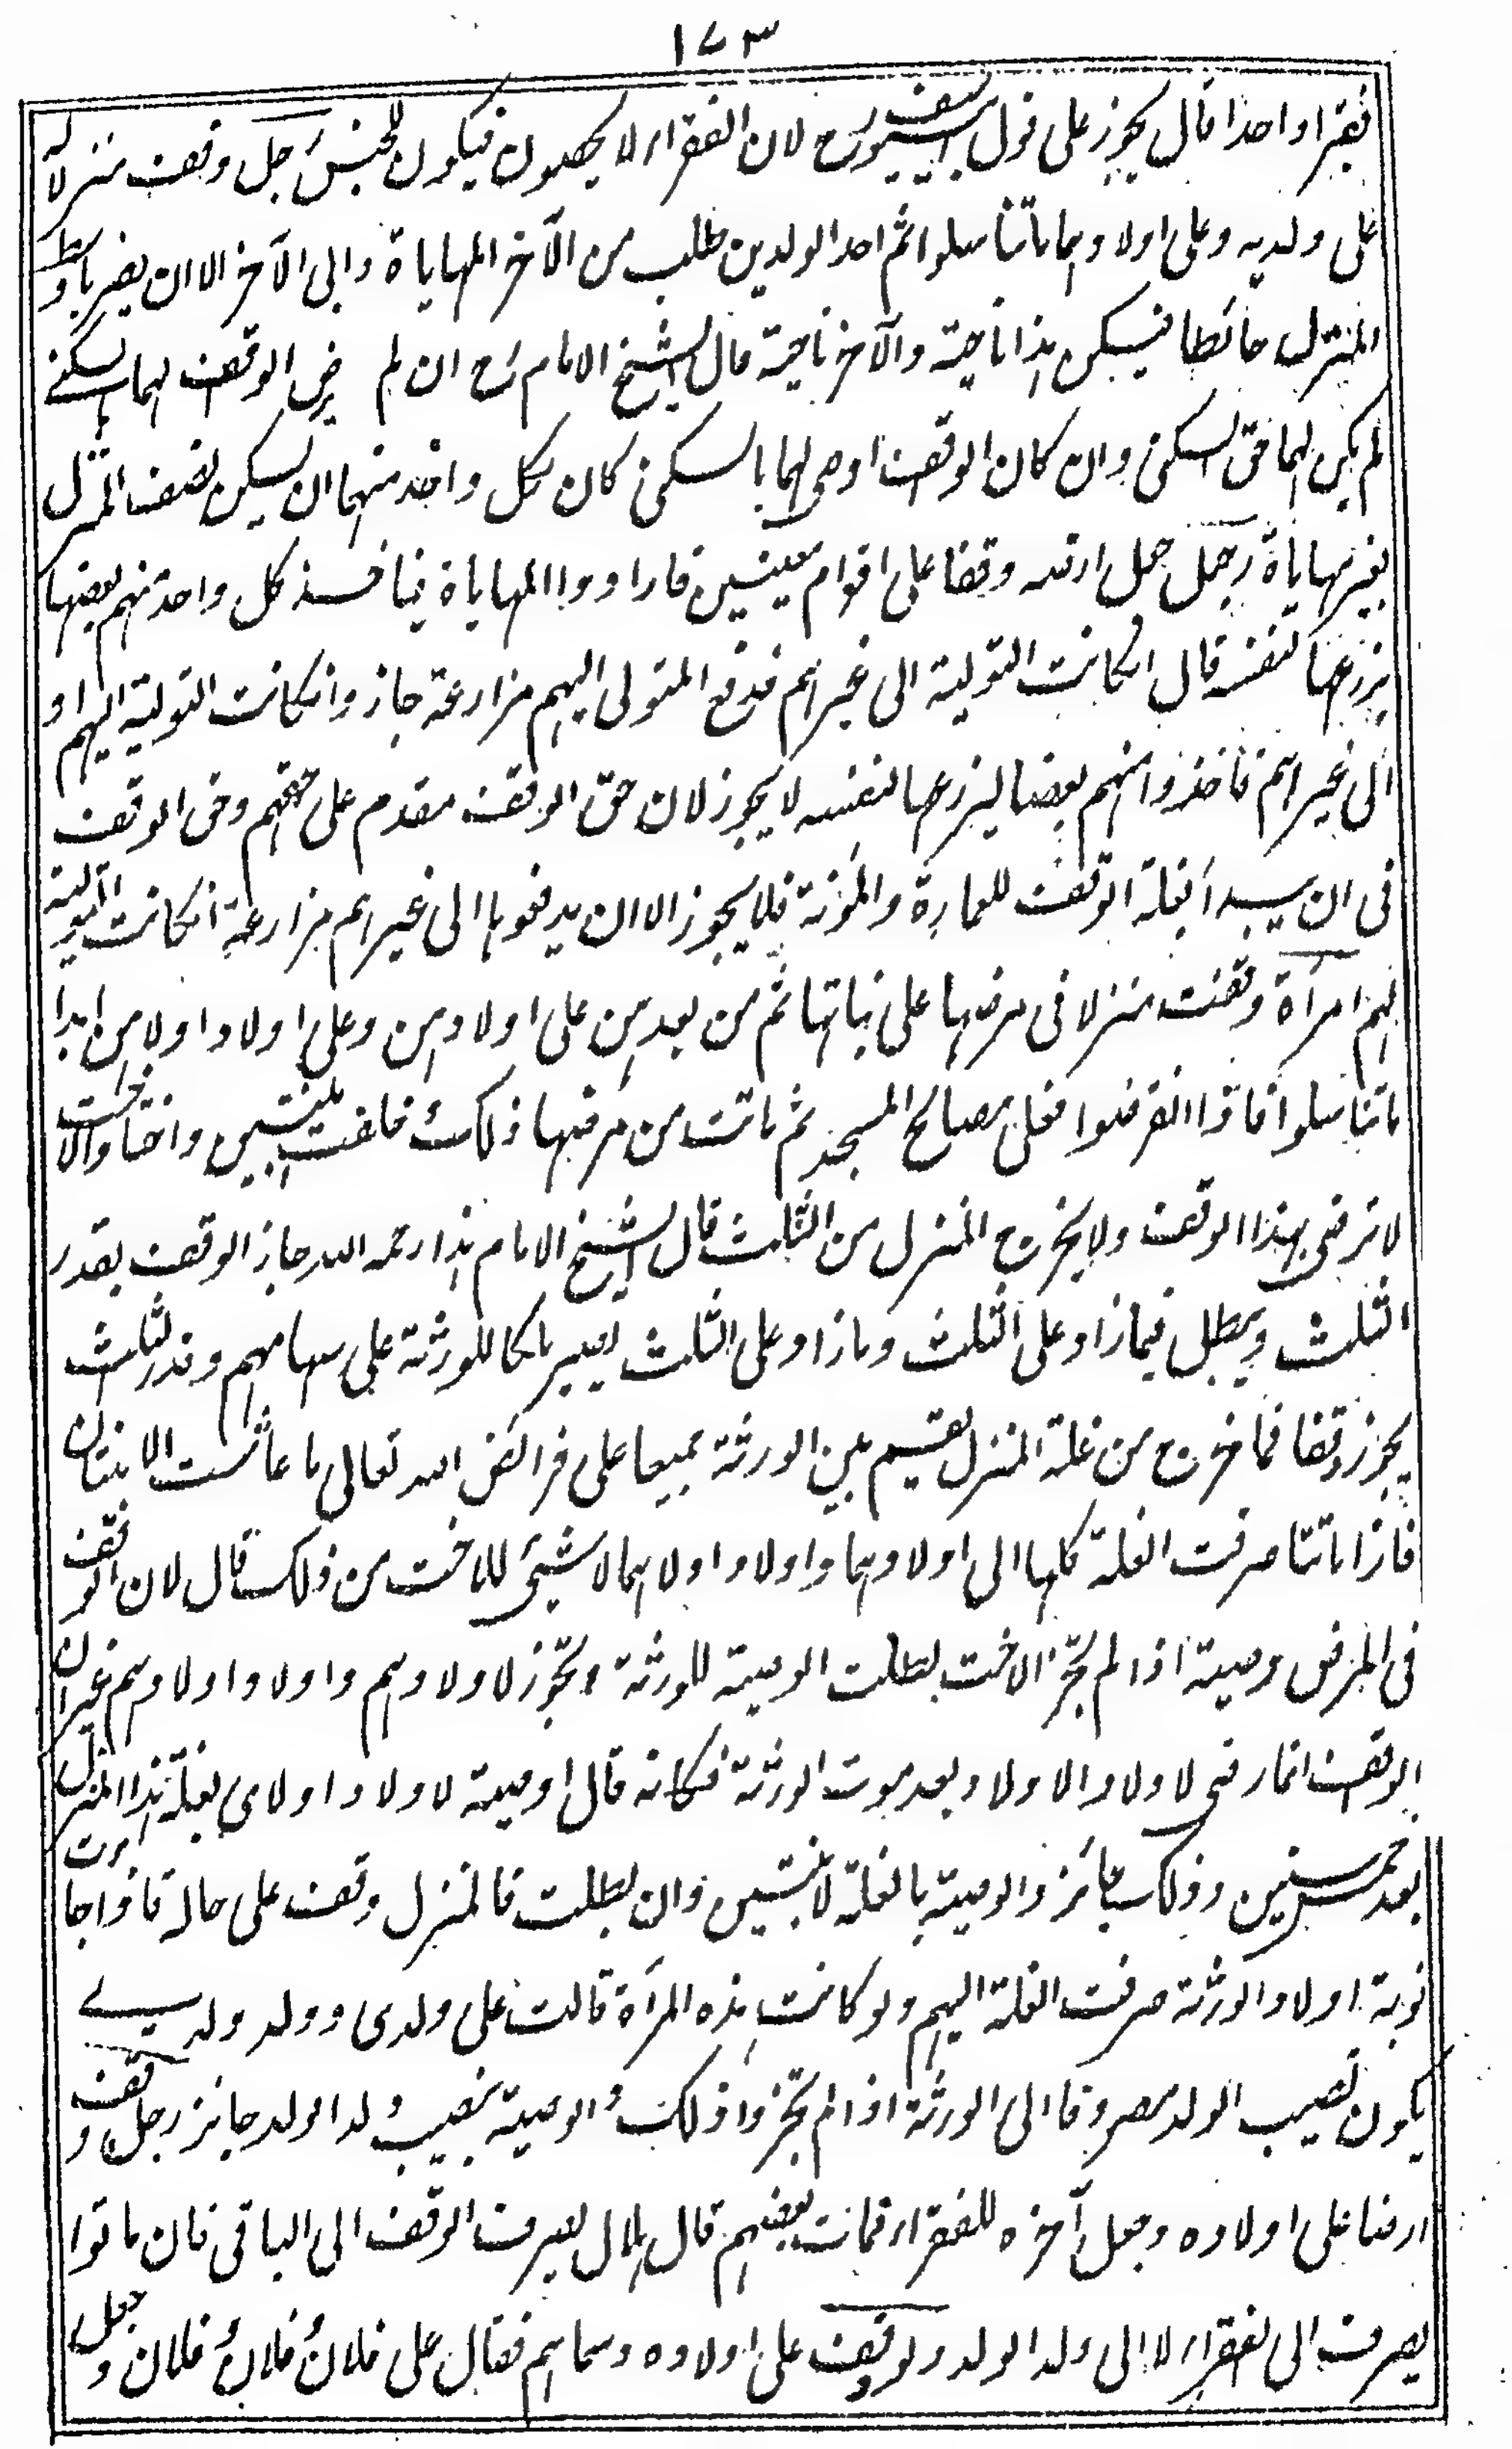 ١٧٣
فقيرا واحدا قال يجوز على قول ابى يوسف رح لان الفقراء لا يحصون فيكون للجنس رجل وقف منزلا له
على ولديه وعلى اولادهما ما تناسلوا ثم احد الولدين طلب من الآخر المهاياة وابى الآخر الا ان يضربا وسط
المنزل حائطا فيسكن هذا ناحية والآخر ناحية قال الشيخ الامام رح ان لم يرض الوقف لهما بالسكنى
لم يكن لهما حق السكنى وان كان الوقف اوصى لهما بالسكنى كان لكل واحد منهما ان يسكن نصف المنزل
بغير مهاياة رجل جعل ارضه وقفا على اقوام معينين فارادوا المهاياة فياخذ كل واحد منهم بعضها
يزرعها لنفسه قال انكانت التولية الى غيرهم فدفع المتولى اليهم مزارعة جاز وانكانت التولية اليهم او
الى غيرهم فاخذوا منهم بعضا ليزرعها لنفسه لا يجوز لان حق الوقف مقدم على حقهم وحق الوقف
فى ان يبدأ بغلة الوقف للعمارة والمؤنة فلا يجوز الا ان يدفعوها الى غيرهم مزارعة انكانت التولية
اليهم امرأة وقفت منزلا فى مرضها على بناتها ثم من بعدهن على اولادهن وعلى اولاد اولادهن ابدا
ما تناسلوا فاذا انقرضوا فعلى مصالح المسجد ثم ماتت من مرضها ذلك خلفت بنتين واختا والاخت
لا ترضى بهذا الوقف ولا يخرج المنزل من الثلث قال الشيخ الامام هذا رحمه الله جاز الوقف بقدر
الثلث ويبطل فيما زاد على الثلث وما زاد على الثلث يصير ملكا للورثة على سهامهم وقدر الثلث
يجوز وقفا فما خرج من غلة المنزل يقسم بين الورثة جميعا على فرائض الله تعالى ما عاشت الابنتان
فاذا ماتتا صرفت الغلة كلها الى اولادهما واولاد اولادهما لا شيئ للاخت من ذلك قال لان الوقف
فى المرض وصية اذا لم تجز الاخت بطلت الوصية للورثة وتجوز لاولادهم واولاد اولادهم غير ان
الوقف انما رضى لاولاد الاولاد بعد موت الورثة فكانه قال اوصيت لاولاد اولادى بغلة هذا المنزل
بعد خمس سنين وذلك جائز والوصية بالغلة لابنتين وان بطلت فالمنزل وقف على حاله فاذا جاءت
نوبة اولاد الورثة صرفت الغلة اليهم ولو كانت هذه المرأة قالت على ولدى وولد ولدى
يكون نصيب الولد مصروفا الى الورثة اذا لم تجيزوا ذلك والوصية بنصيب ولد الولد جائز رجل وقف
ارضا على اولاده وجعل آخره للفقراء فمات بعضهم قال هلال يصرف الوقف الى الباقى فان ماتوا
يصرف الى الفقراء لا الى ولد الولد ولو وقف على اولاده وسماهم فقال على فلان وفلان وفلان وجعل